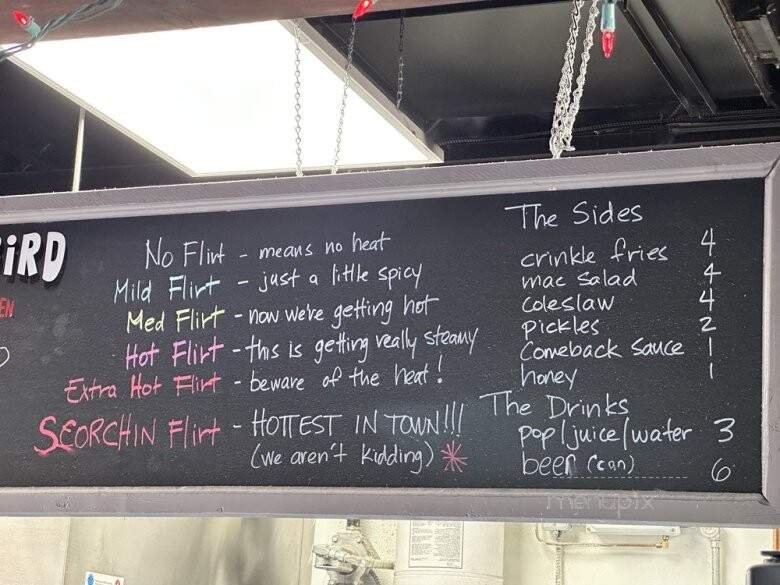 iRD
EN
No Flirt - means no heat
Mild Flirt - just a little spicy
Med Flirt - now we're getting hot
Hot Flirt - this is getting really steamy
Extra Hot Flirt - beware of the heat!
SCORCHIN Flirt - HOTTEST IN TOWN!!!
(we aren't kidding) *
The Sides
crinkle fries 4
mac salad 4
coleslaw 4
pickles 2
Comeback Sauce 1
honey 1
The Drinks
pop/juice/water 3
beer (can) 6
menupix